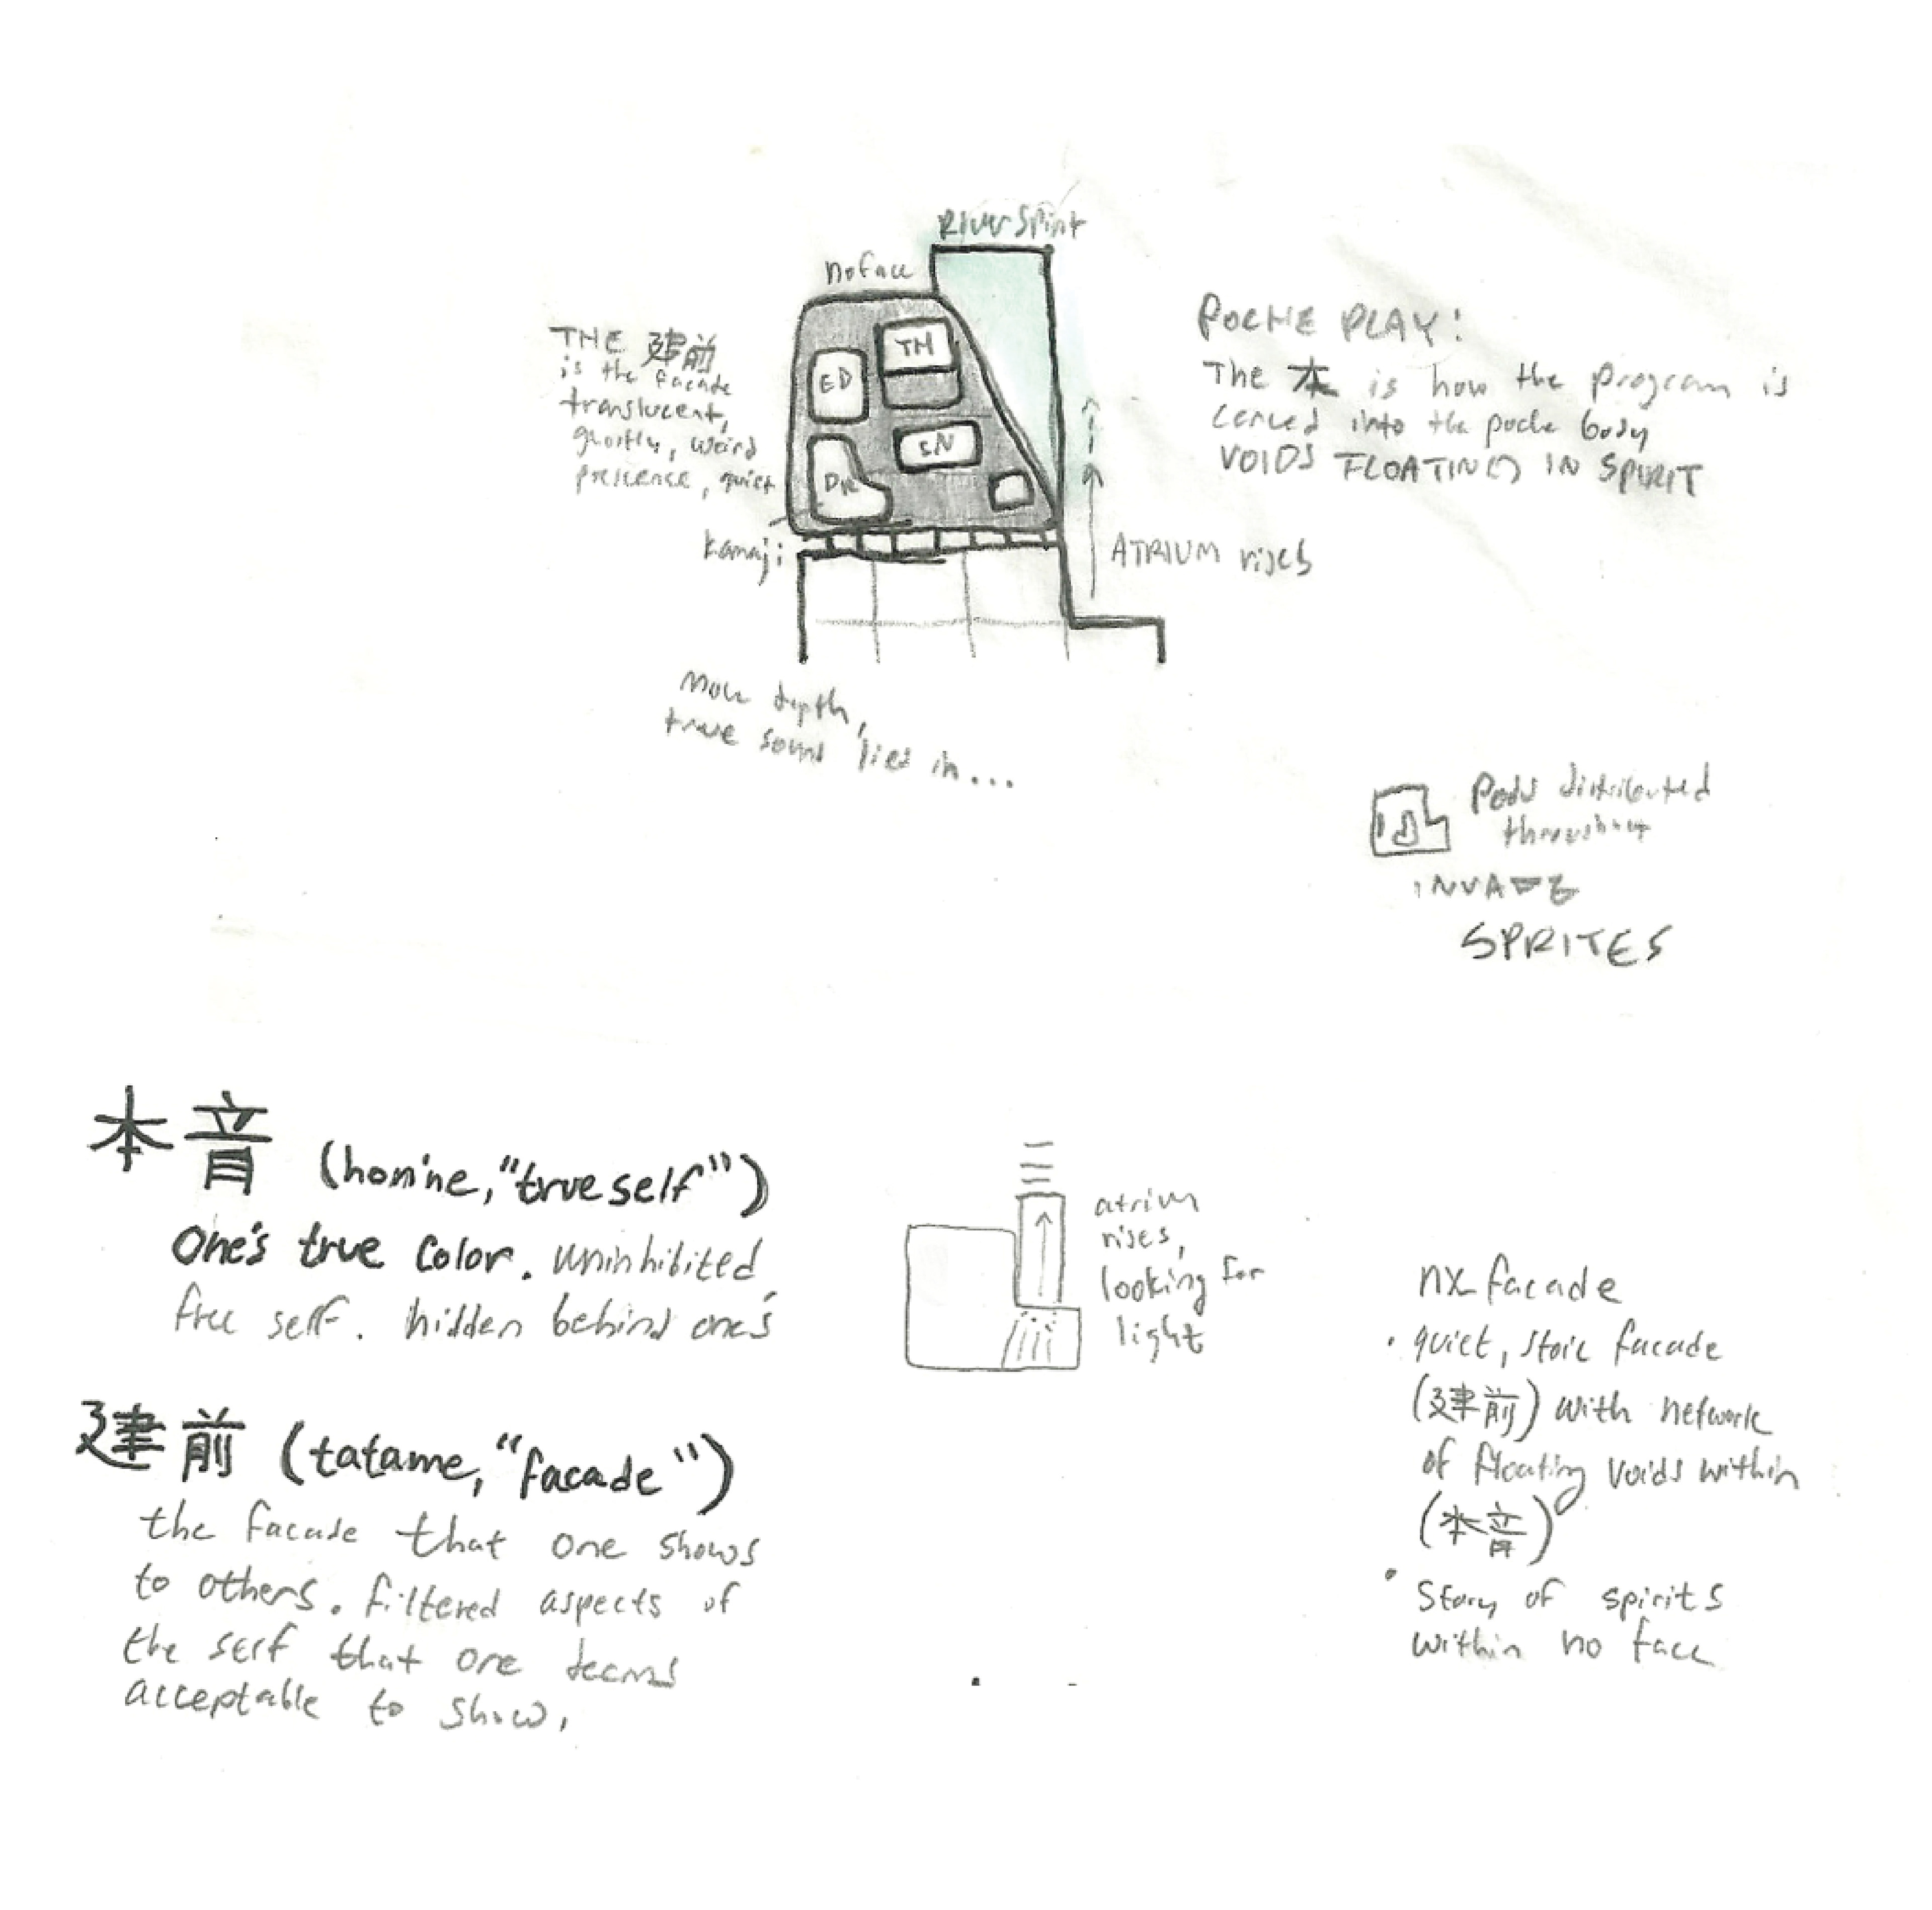 River Spirit
no face
THE 建前
is the facade
translucent,
ghostly, weird
presence, quiet
TH
ED
SN
DR
Kamaji
POCHE PLAY:
The 本 is how the program is
carved into the poche body
VOIDS FLOATING IN SPIRIT
ATRIUM rises
More depth,
true sound lies in...
Pods distributed
throughout
INVADE
SPRITES
本音 (hon'ne, "true self")
One's true color. uninhibited
free self. hidden behind one's
建前 (tatame, "facade")
the facade that one shows
to others. filtered aspects of
the self that one deems
acceptable to show,
atrium
rises,
looking for
light
nx facade
• quiet, stoic facade
(建前) with network
of floating voids within
(本音)
• Story of spirits
within no face